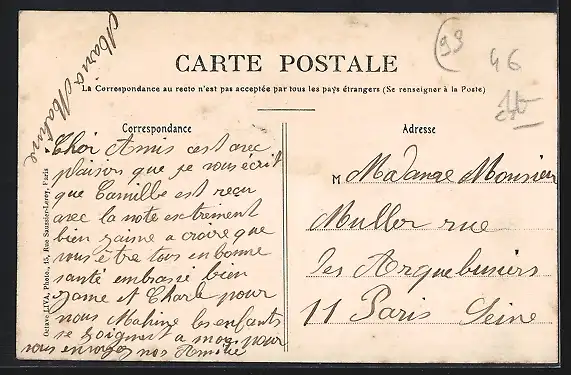 Maria Mahire
(93
46
CARTE POSTALE
La Correspondance au recto n'est pas acceptée par tous les pays étrangers (Se renseigner à la Poste)
Correspondance
Adresse
Octave LIVA, Photo., 15, Rue Saussier-Leroy, Paris
Cher Amis cest avec
plaisir que je vous écrit
que Camille est reçu
avec la note
bien jaime a croire que
vous être tous en bonne
santé embrassé bien
Jame et Charle pour
nous Mahire les enfants
se joignent a moi pour
vous envoyez nos Amitié
M Madame Monsieur
Muller rue
des Arquebusiers
11 Paris Seine